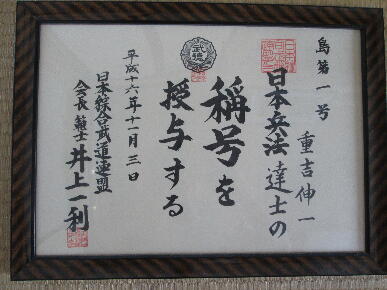 島第一号
重吉伸一
日本兵法達士の
称号を
授与する
平成十六年十一月三日
日本総合武道連盟
会長範士井上一利